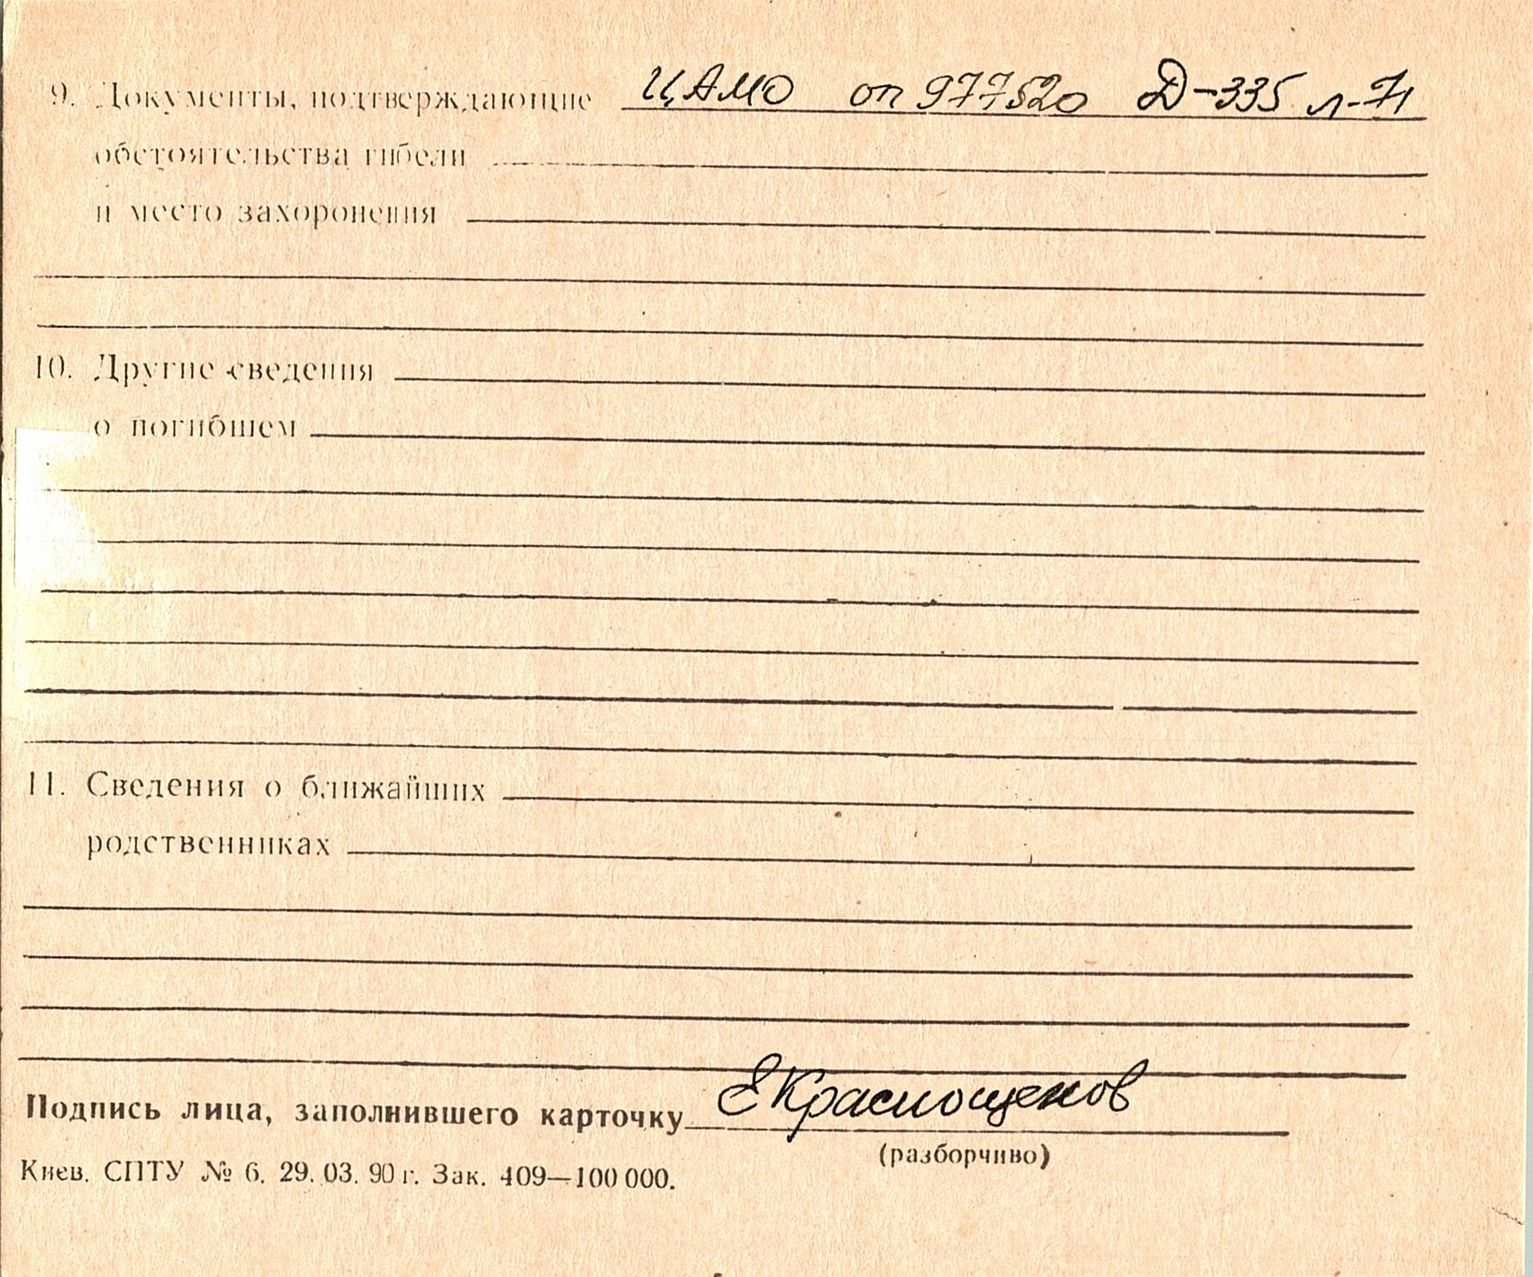 9. Документы, подтверждающие ЦАМО оп 977520 Д-335 л-71
обстоятельства гибели
и место захоронения
10. Другие сведения
о погибшем
11. Сведения о ближайших
родственниках
Подпись лица, заполнившего карточку ЕКраснощеков
(разборчиво)
Киев. СПТУ № 6. 29. 03. 90 г. Зак. 409—100 000.